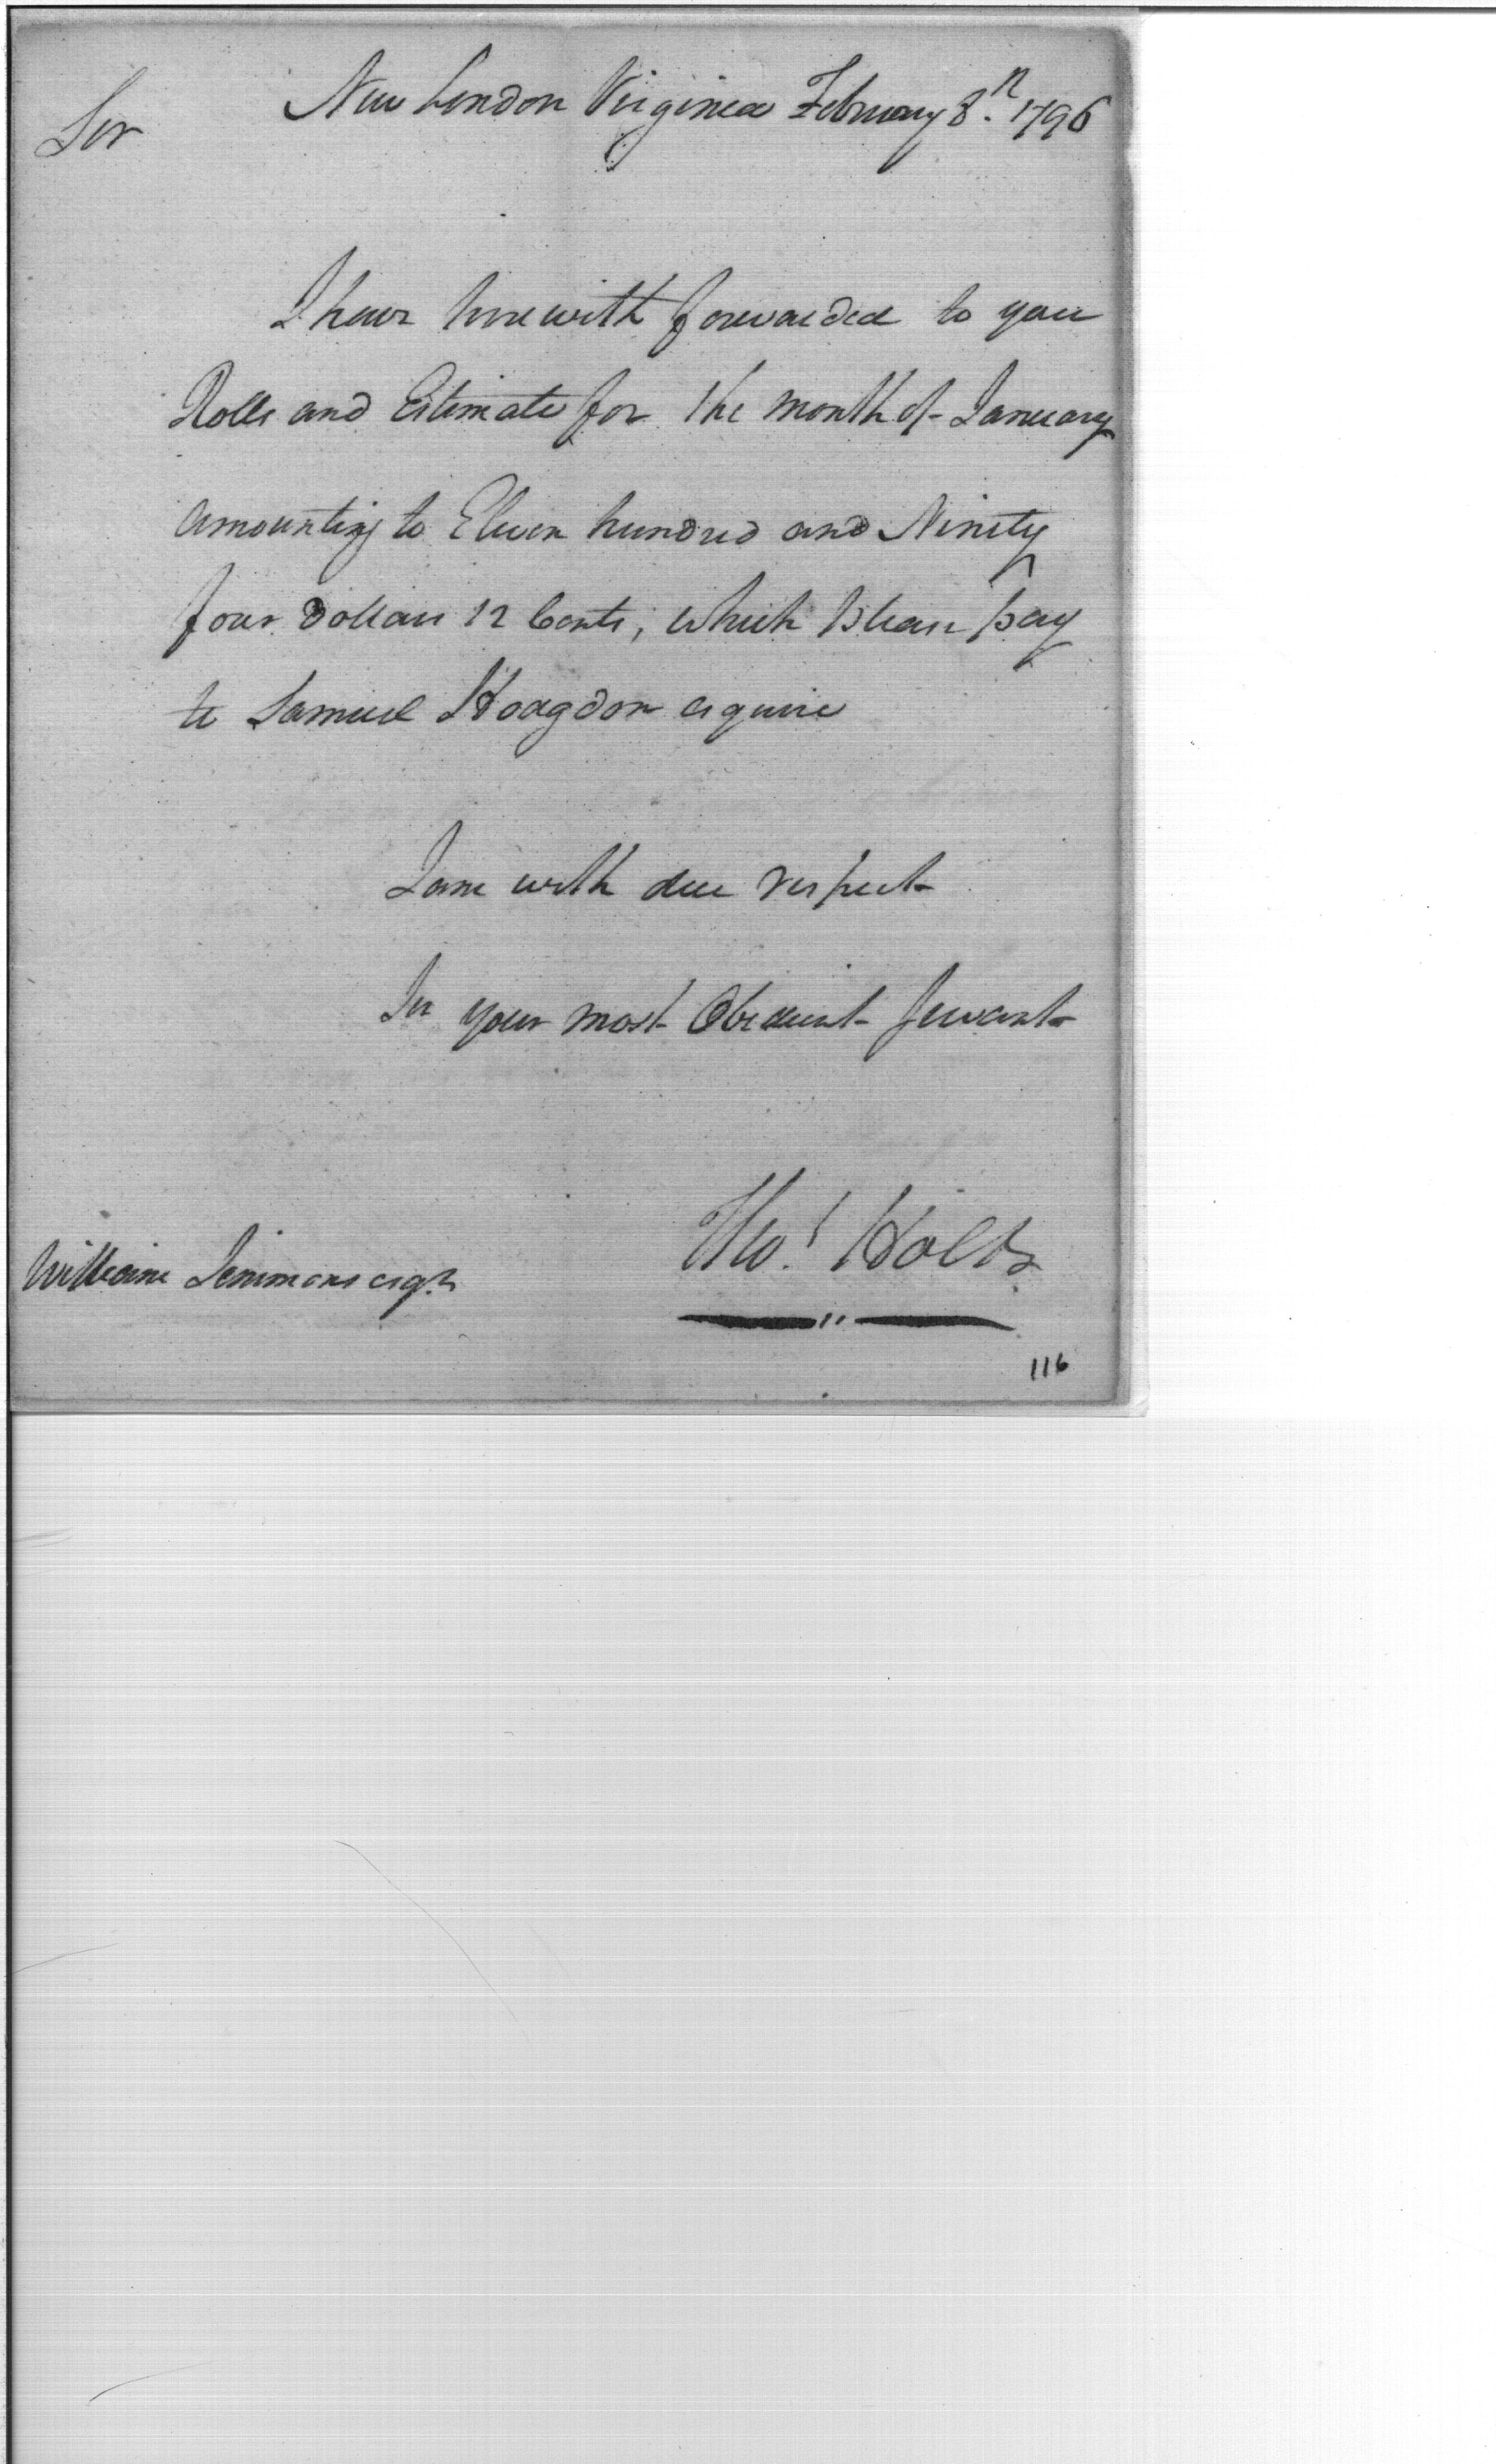 New London Virginia February 8.th 1796
Sir
I have herewith forwarded to you
Rolls and Estimate for the month of January
amounting to Eleven hundred and Ninety
four Dollars 12 Cents, which please pay
to Samuel Hodgdon esquire
I am with due respect
Sir your most Obedient Servant
Tho.s Holt
William Simmons esqr.
116